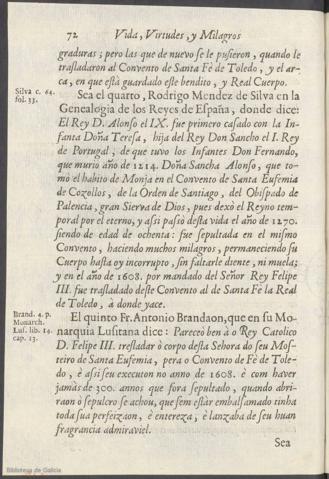 72 Vida, Virtudes, y Milagros
graduras; pero las que de nuevo se le pusieron, quando le
trasladaron al Convento de Santa Fè de Toledo, y el ar-
ca, en que està guardado este bendito, y Real Cuerpo.
Silva c. 64.
fol. 33.
Sea el quarto, Rodrigo Mendez de Silva en la
Genealogia de los Reyes de España, donde dice:
El Rey D. Alonso el IX. fue primero casado con la In-
fanta Doña Teresa, hija del Rey Don Sancho el I. Rey
de Portugal, de que tuvo los Infantes Don Fernando,
que muriò año de 1214. Doña Sancha Alonso, que to-
mò el habito de Monja en el Convento de Santa Eufemia
de Cozollos, de la Orden de Santiago, del Obispado de
Palencia, gran Sierva de Dios, pues dexò el Reyno tem-
poral por el eterno, y assi passò desta vida el año de 1270.
siendo de edad de ochenta: fue sepultada en el mismo
Convento, haciendo muchos milagros, permaneciendo su
Cuerpo hasta oy incorrupto, sin faltarle diente, ni muela;
y en el año de 1608. por mandado del Señor Rey Felipe
III. fue trasladado deste Convento al de Santa Fè la Real
de Toledo, à donde yace.
Brand. 4. p.
Monarch.
Lus. lib. 14.
cap. 13.
El quinto Fr. Antonio Brandaon, que en su Mo-
narquia Lusitana dice: Pareceò ben à o Rey Catolico
D. Felipe III. tresladar ò corpo desta Sehora do seu Mos-
teiro de Santa Eufemia, pera o Convento de Fè de Tole-
do, è assi seu executon no anno de 1608. è com haver
jamàs de 300. annos que fora sepultado, quando abri-
raon ò sepulcro se achou, que sem estàr embalsamado tinha
toda sua perfeizaon, è entereza, è lanzaba de seu huan
fragrancia admiraviel.
Sea
Biblioteca de Galicia